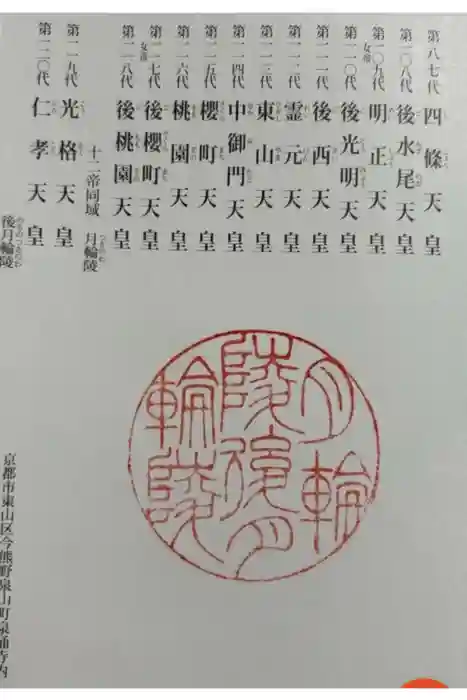 第八七代 四條天皇
第一〇八代 後水尾天皇
第一〇九代 女帝 明正天皇
第一一〇代 後光明天皇
第一一一代 後西天皇
第一一二代 霊元天皇
第一一三代 東山天皇
第一一四代 中御門天皇
第一一五代 櫻町天皇
第一一六代 桃園天皇
第一一七代 女帝 後櫻町天皇
第一一八代 後桃園天皇
十二帝同域 月輪陵
第一一九代 光格天皇
第一二〇代 仁孝天皇
後月輪陵
月輪
陵後月
輪陵
京都市東山区今熊野泉山町泉涌寺内